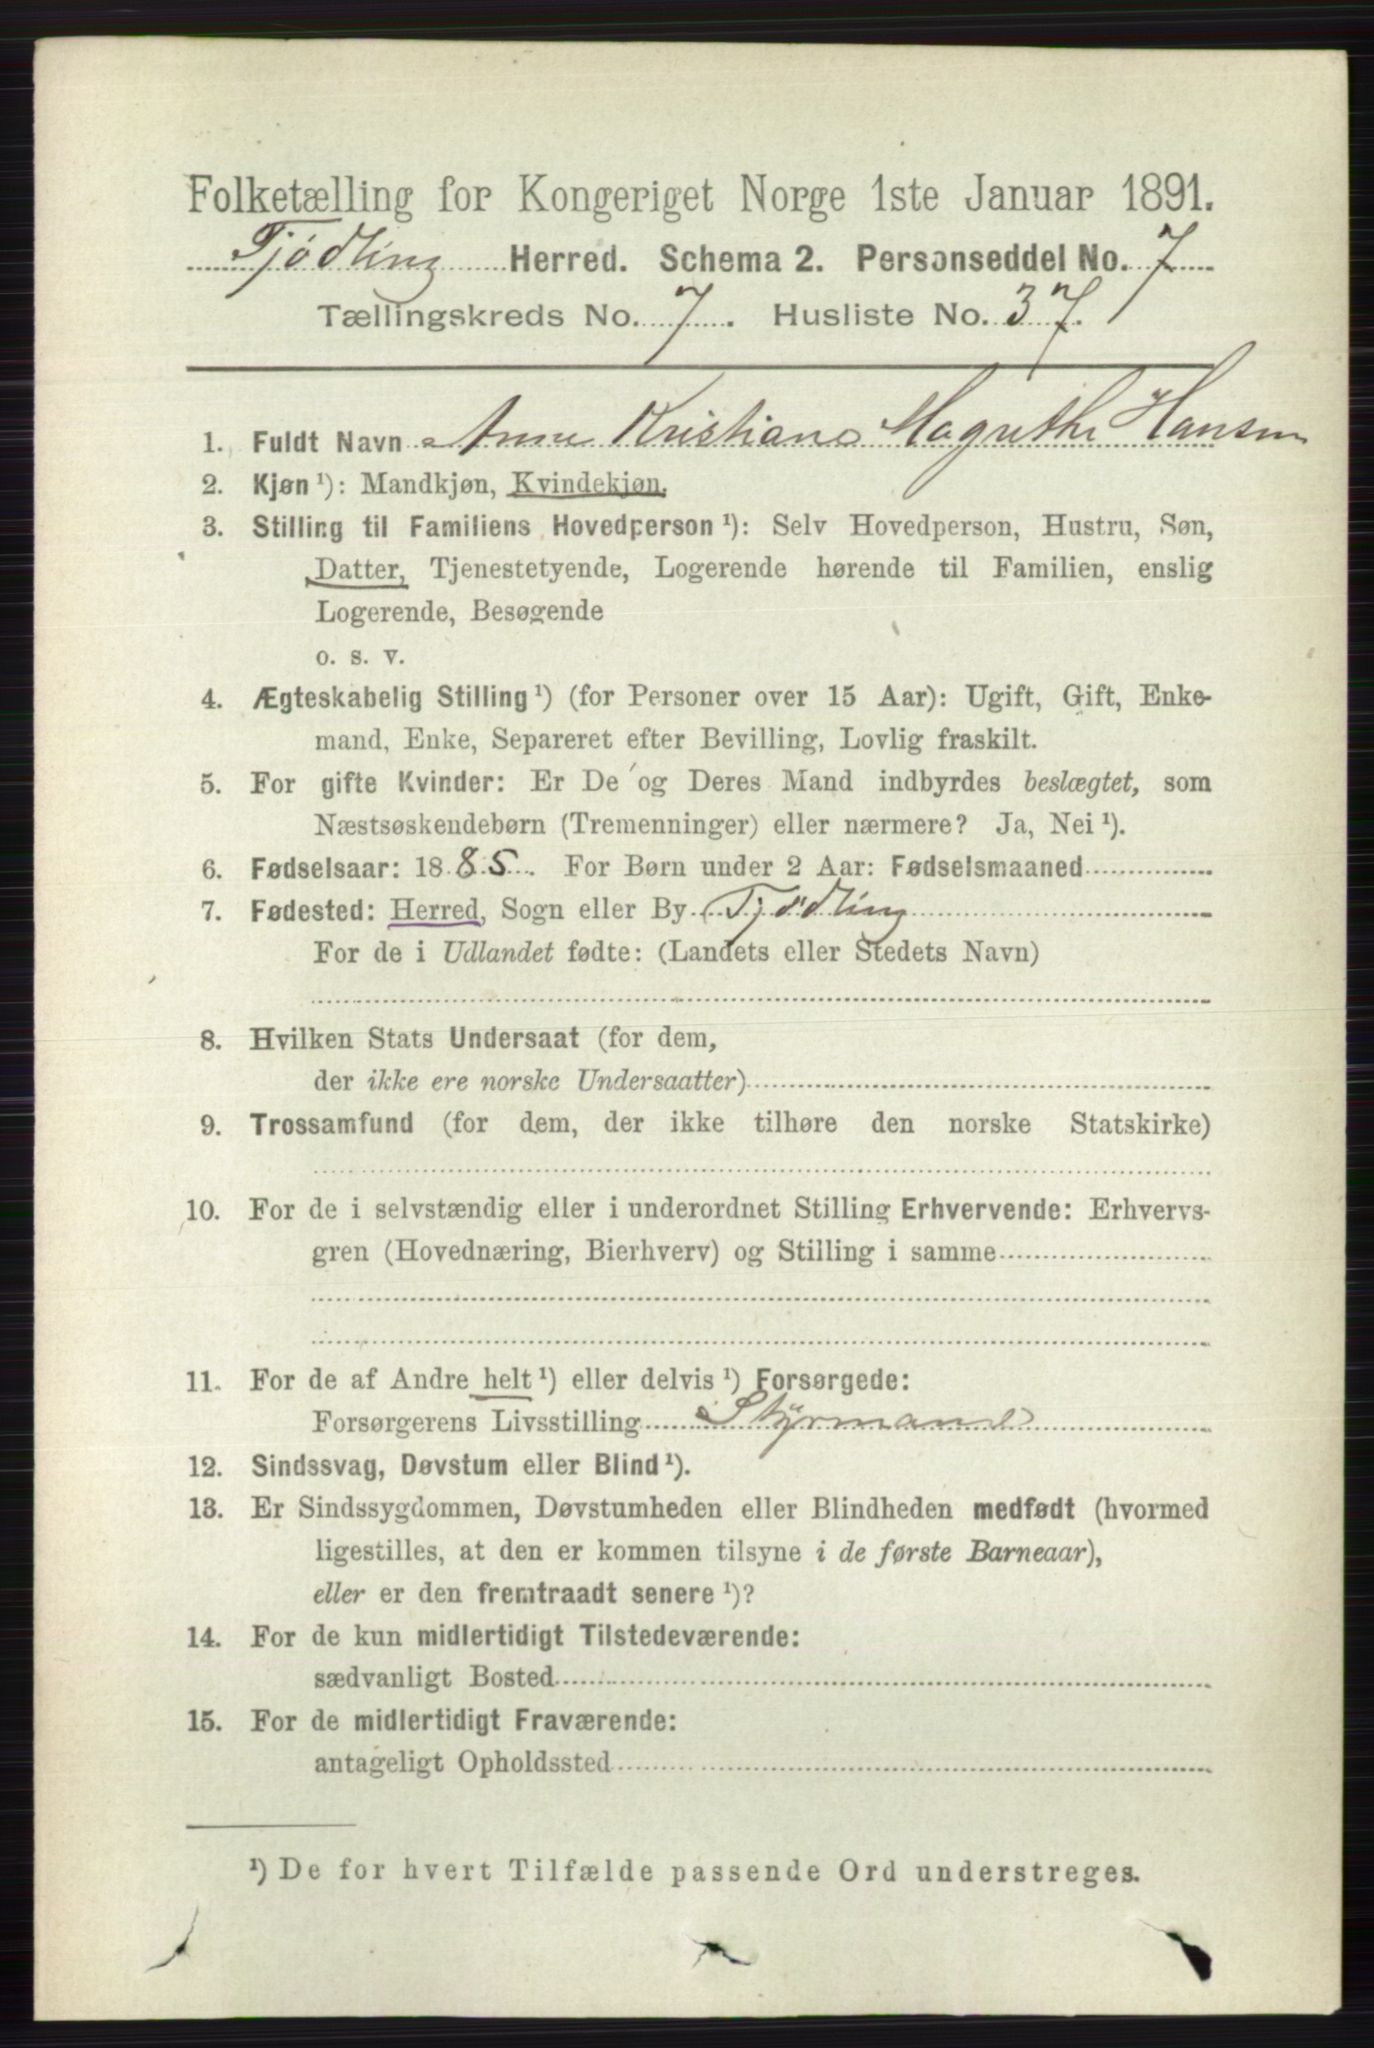 Folketælling for Kongeriget Norge 1ste Januar 1891.
Tjødling Herred. Schema 2. Personseddel No. 7
Tællingskreds No. 7. Husliste No. 37.
1. Fuldt Navn Anne Kristiane Magrethe Hansen
2. Kjøn ¹): Mandkjøn, Kvindekjøn.
3. Stilling til Familiens Hovedperson ¹): Selv Hovedperson, Hustru, Søn,
Datter, Tjenestetyende, Logerende hørende til Familien, enslig
Logerende, Besøgende
o. s. v.
4. Ægteskabelig Stilling ¹) (for Personer over 15 Aar): Ugift, Gift, Enke-
mand, Enke, Separeret efter Bevilling, Lovlig fraskilt.
5. For gifte Kvinder: Er De og Deres Mand indbyrdes beslægtet, som
Næstsøskendebørn (Tremenninger) eller nærmere? Ja, Nei ¹).
6. Fødselsaar: 1885. For Børn under 2 Aar: Fødselsmaaned
7. Fødested: Herred, Sogn eller By Tjødling
For de i Udlandet fødte: (Landets eller Stedets Navn)
8. Hvilken Stats Undersaat (for dem,
der ikke ere norske Undersaatter)
9. Trossamfund (for dem, der ikke tilhøre den norske Statskirke)
10. For de i selvstændig eller i underordnet Stilling Erhvervende: Erhvervs-
gren (Hovednæring, Bierhverv) og Stilling i samme
11. For de af Andre helt ¹) eller delvis ¹) Forsørgede:
Forsørgerens Livsstilling Styrmand
12. Sindssvag, Døvstum eller Blind ¹).
13. Er Sindssygdommen, Døvstumheden eller Blindheden medfødt (hvormed
ligestilles, at den er kommen tilsyne i de første Barneaar),
eller er den fremtraadt senere ¹)?
14. For de kun midlertidigt Tilstedeværende:
sædvanligt Bosted
15. For de midlertidigt Fraværende:
antageligt Opholdssted
¹) De for hvert Tilfælde passende Ord understreges.